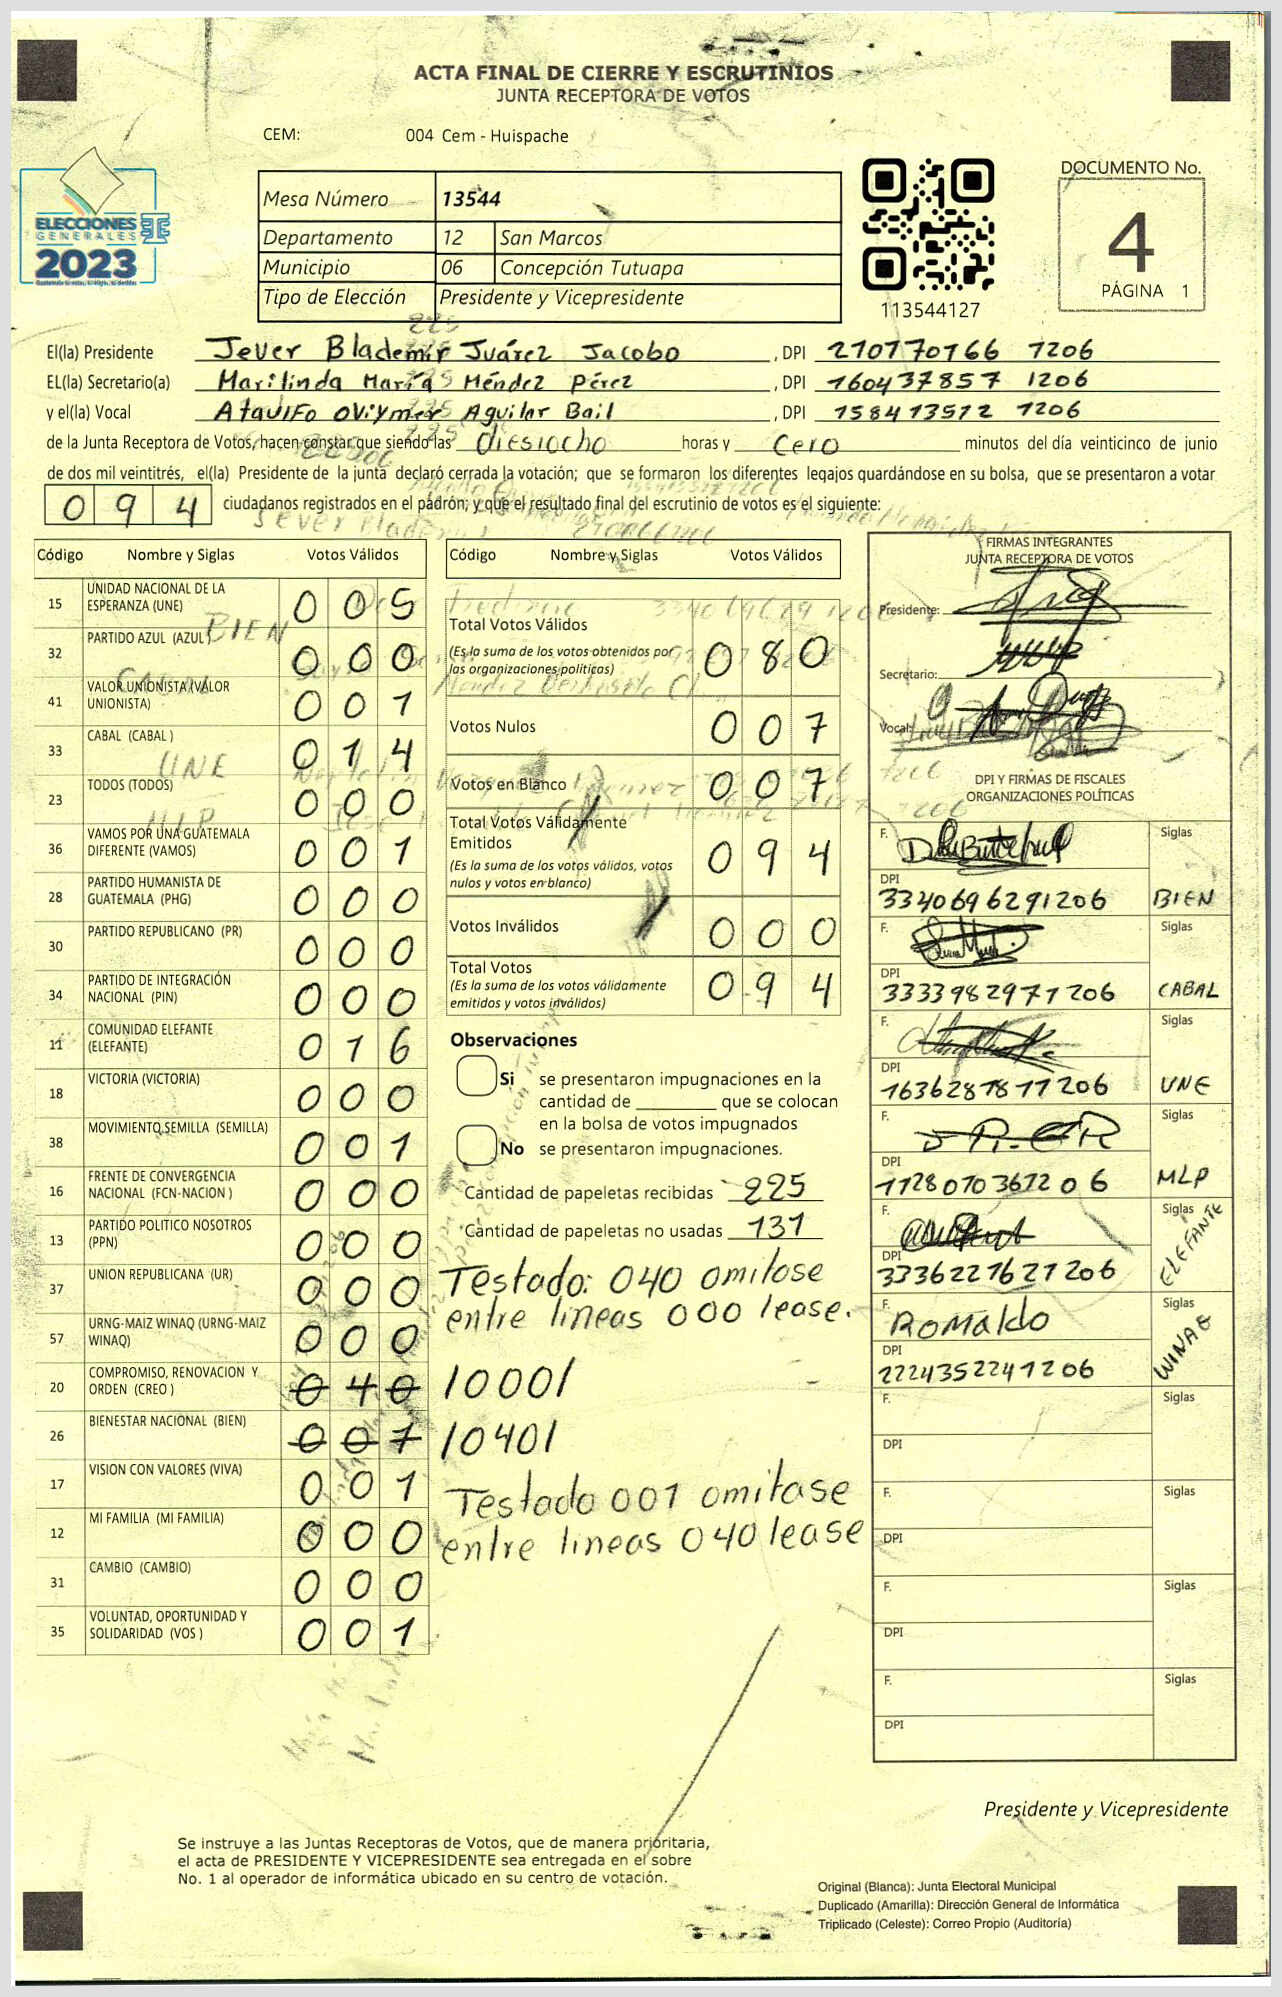 ACTA FINAL DE CIERRE Y ESCRUTINIOS
JUNTA RECEPTORA DE VOTOS
CEM: 004 Cem - Huispache
ELECCIONES
GENERALES
2023
Mesa Número 13544
Departamento 12 San Marcos
Municipio 06 Concepción Tutuapa
Tipo de Elección Presidente y Vicepresidente
113544127
DOCUMENTO No.
4
PÁGINA 1
El(la) Presidente Jever Blademir Juárez Jacobo, DPI 210770166 1206
EL(la) Secretario(a) Marilinda María Méndez Pérez, DPI 160437857 1206
y el(la) Vocal Ataulfo Oviymer Aguilar Bail, DPI 158413512 1206
de la Junta Receptora de Votos, hacen constar que siendo las diesiocho horas y cero minutos del día veinticinco de junio
de dos mil veintitrés, el(la) Presidente de la junta declaró cerrada la votación; que se formaron los diferentes legajos guardándose en su bolsa, que se presentaron a votar
094 ciudadanos registrados en el padrón; y que el resultado final del escrutinio de votos es el siguiente:
Código Nombre y Siglas Votos Válidos
15 UNIDAD NACIONAL DE LA ESPERANZA (UNE) 005
32 PARTIDO AZUL (AZUL) 000
41 VALOR UNIONISTA (VALOR UNIONISTA) 001
33 CABAL (CABAL ) 014
23 TODOS (TODOS) 000
36 VAMOS POR UNA GUATEMALA DIFERENTE (VAMOS) 001
28 PARTIDO HUMANISTA DE GUATEMALA (PHG) 000
30 PARTIDO REPUBLICANO (PR) 000
34 PARTIDO DE INTEGRACIÓN NACIONAL (PIN) 000
11 COMUNIDAD ELEFANTE (ELEFANTE) 016
18 VICTORIA (VICTORIA) 000
38 MOVIMIENTO SEMILLA (SEMILLA) 001
16 FRENTE DE CONVERGENCIA NACIONAL (FCN-NACION ) 000
13 PARTIDO POLITICO NOSOTROS (PPN) 000
37 UNION REPUBLICANA (UR) 000
57 URNG-MAIZ WINAQ (URNG-MAIZ WINAQ) 000
20 COMPROMISO, RENOVACION Y ORDEN (CREO ) 040 10001
26 BIENESTAR NACIONAL (BIEN) 001 10401
17 VISION CON VALORES (VIVA) 001
12 MI FAMILIA (MI FAMILIA) 000
31 CAMBIO (CAMBIO) 000
35 VOLUNTAD, OPORTUNIDAD Y SOLIDARIDAD (VOS ) 001
Código Nombre y Siglas Votos Válidos
Total Votos Válidos 080
(Es la suma de los votos obtenidos por
las organizaciones políticas)
Votos Nulos 007
Votos en Blanco 007
Total Votos Válidamente
Emitidos 094
(Es la suma de los votos válidos, votos
nulos y votos en blanco)
Votos Inválidos 000
Total Votos 094
(Es la suma de los votos válidamente
emitidos y votos inválidos)
Observaciones
Si se presentaron impugnaciones en la
cantidad de ________ que se colocan
en la bolsa de votos impugnados
No se presentaron impugnaciones.
Cantidad de papeletas recibidas 225
Cantidad de papeletas no usadas 131
Testado: 040 omitase
entre lineas 000 lease.
Testado 001 omitase
entre lineas 040 lease
FIRMAS INTEGRANTES
JUNTA RECEPTORA DE VOTOS
Presidente:
Secretario:
Vocal:
DPI Y FIRMAS DE FISCALES
ORGANIZACIONES POLÍTICAS
F. Siglas
DPI
3340696291206 BIEN
F. Siglas
DPI
3333982971206 CABAL
F. Siglas
DPI
1636281811206 UNE
F. Siglas
DPI
1128070361206 MLP
F. Siglas
DPI
3336221621206 ELEFANTE
F. Romaldo Siglas
DPI
2224352241206 WINAQ
F. Siglas
DPI
F. Siglas
DPI
F. Siglas
DPI
F. Siglas
DPI
Presidente y Vicepresidente
Se instruye a las Juntas Receptoras de Votos, que de manera prioritaria,
el acta de PRESIDENTE Y VICEPRESIDENTE sea entregada en el sobre
No. 1 al operador de informática ubicado en su centro de votación.
Original (Blanca): Junta Electoral Municipal
Duplicado (Amarilla): Dirección General de Informática
Triplicado (Celeste): Correo Propio (Auditoría)